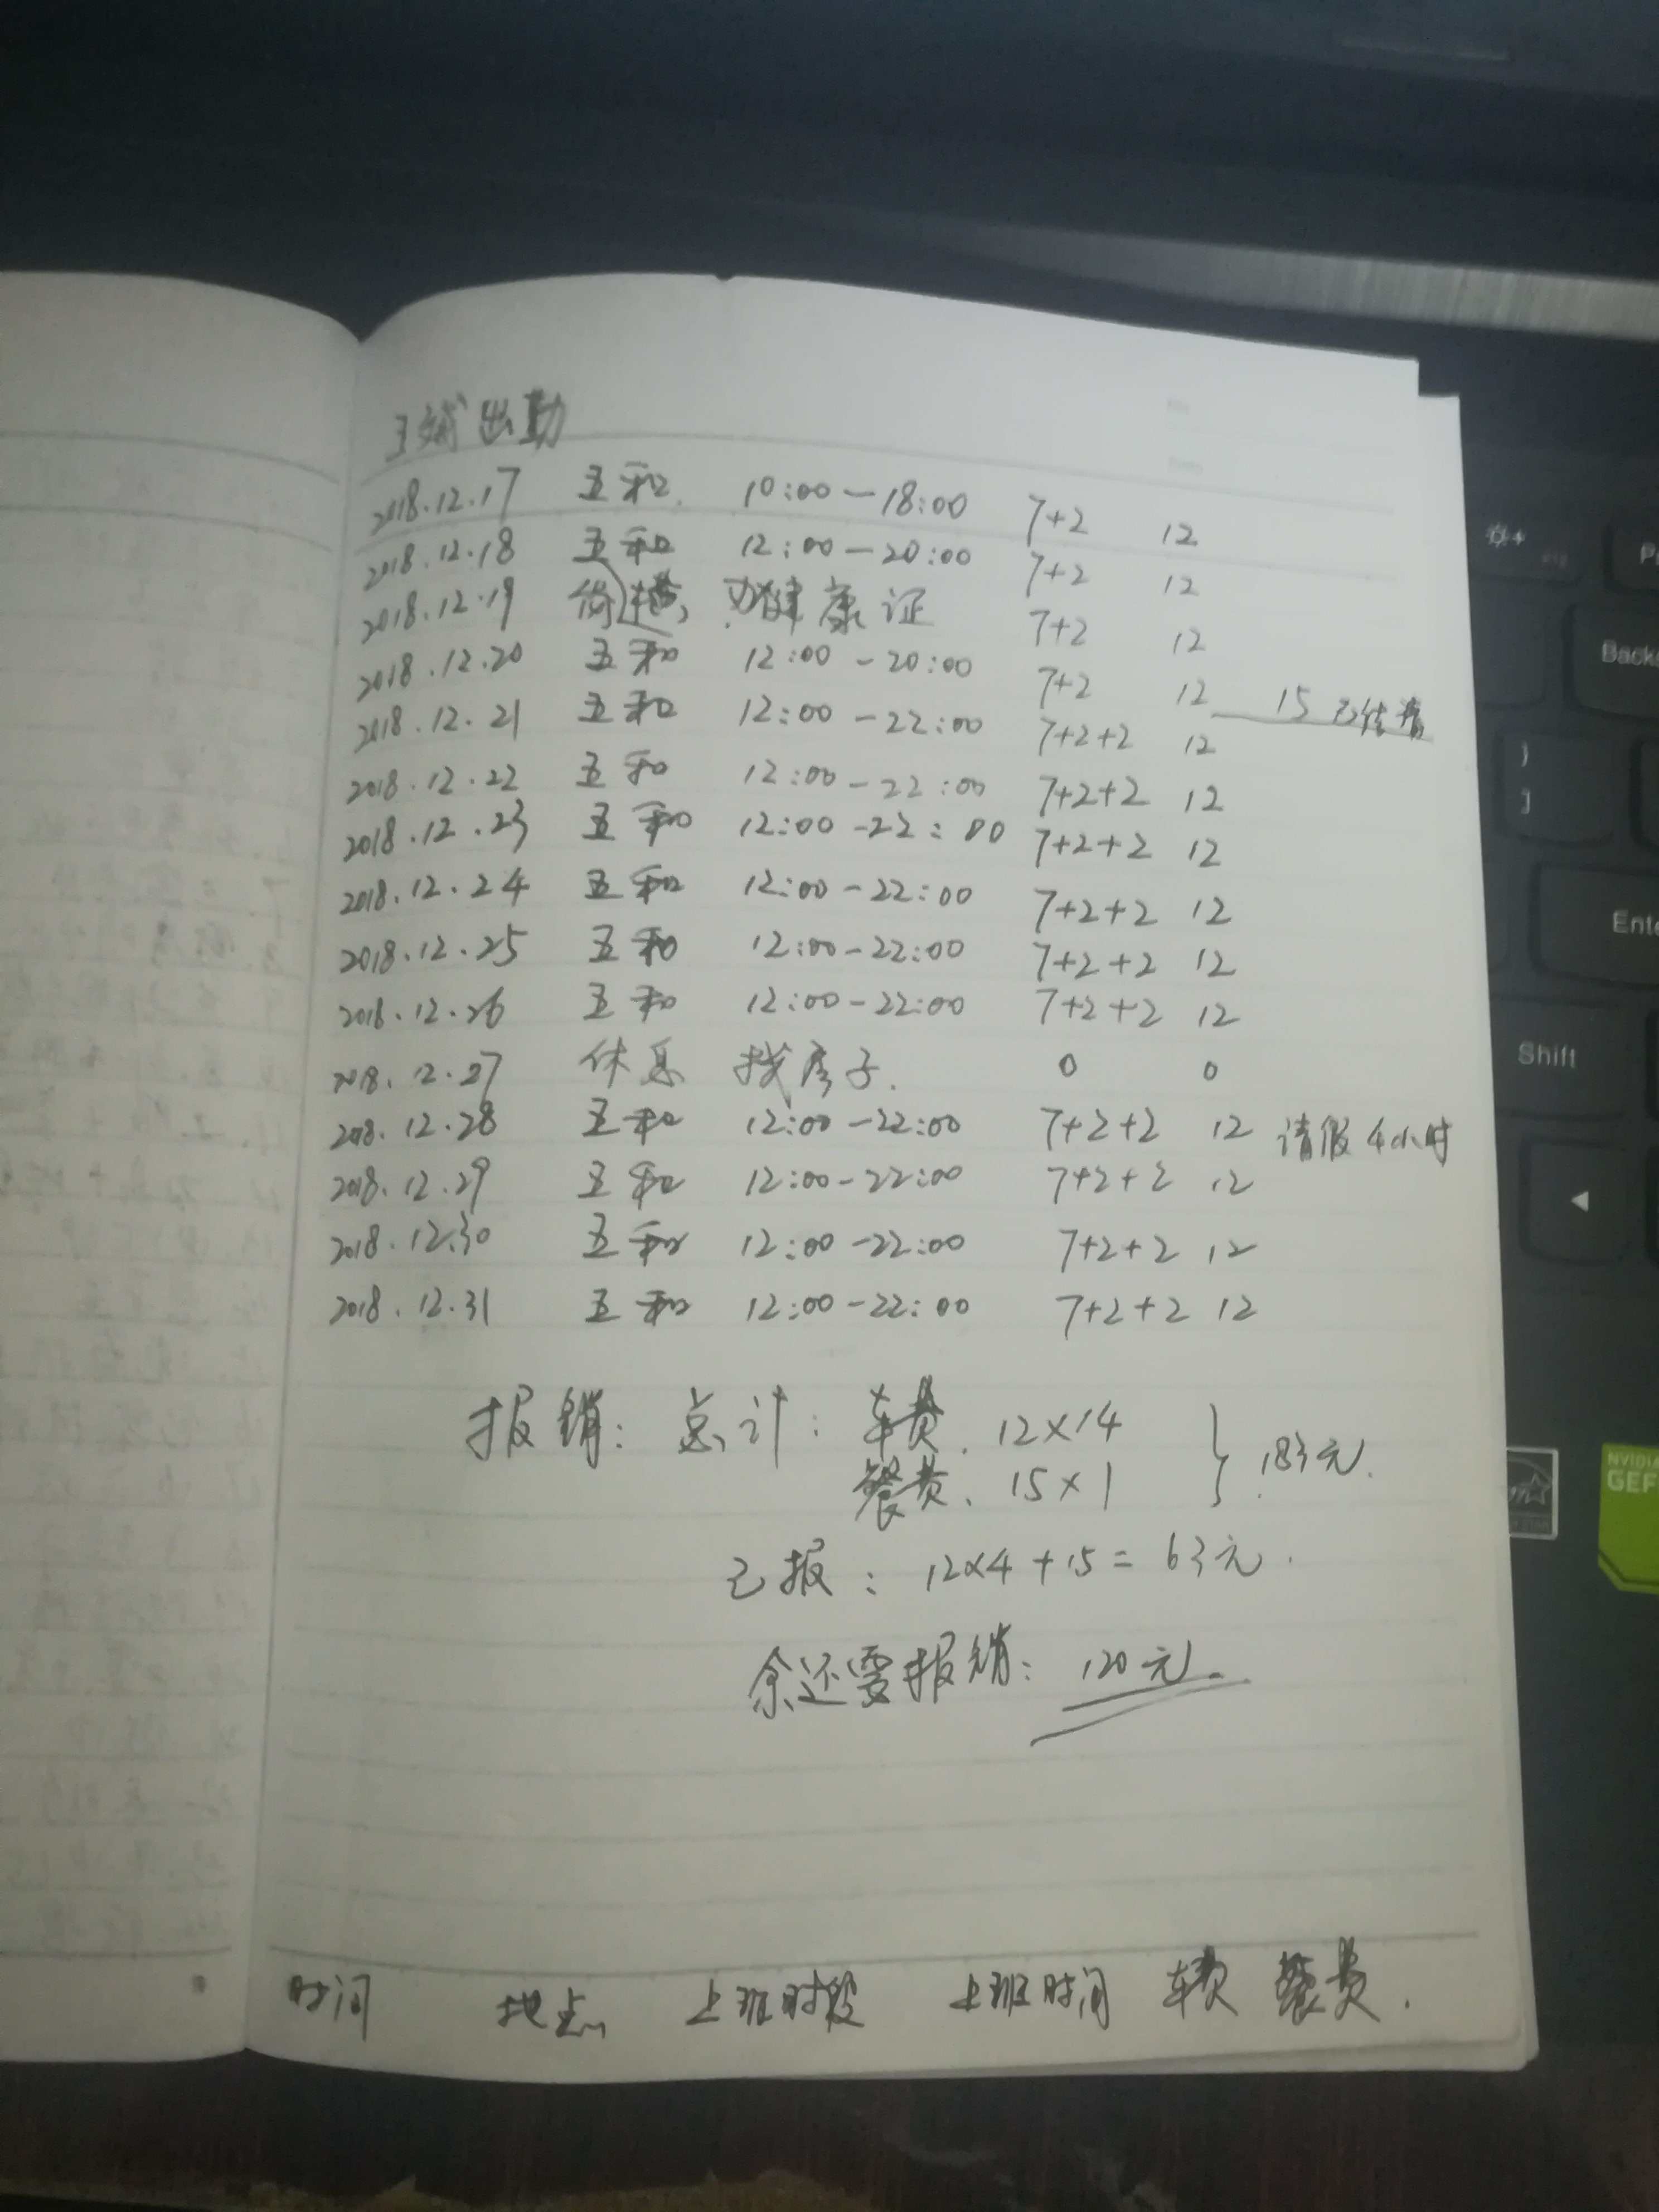 出勤
2018.12.17 五和. 10:00-18:00 7+2 12
2018.12.18 五和 12:00-20:00 7+2 12
2018.12.19 办健康证 7+2 12
2018.12.20 五和 12:00-20:00 7+2 12 15 已结清
2018.12.21 五和 12:00-22:00 7+2+2 12
2018.12.22 五和 12:00-22:00 7+2+2 12
2018.12.23 五和 12:00-22:00 7+2+2 12
2018.12.24 五和 12:00-22:00 7+2+2 12
2018.12.25 五和 12:00-22:00 7+2+2 12
2018.12.26 五和 12:00-22:00 7+2+2 12
2018.12.27 休息 找房子. 0 0
2018.12.28 五和 12:00-22:00 7+2+2 12 请假4小时
2018.12.29 五和 12:00-22:00 7+2+2 12
2018.12.30 五和 12:00-22:00 7+2+2 12
2018.12.31 五和 12:00-22:00 7+2+2 12
报销: 总计: 车费. 12×14 } 183元.
餐费. 15×1
已报: 12×4+15=63元.
余还要报销: 120元.
时间 地点 上班时段 上班时间 车费 餐费.
Back
Ente
Shift
NVIDIA
GEF